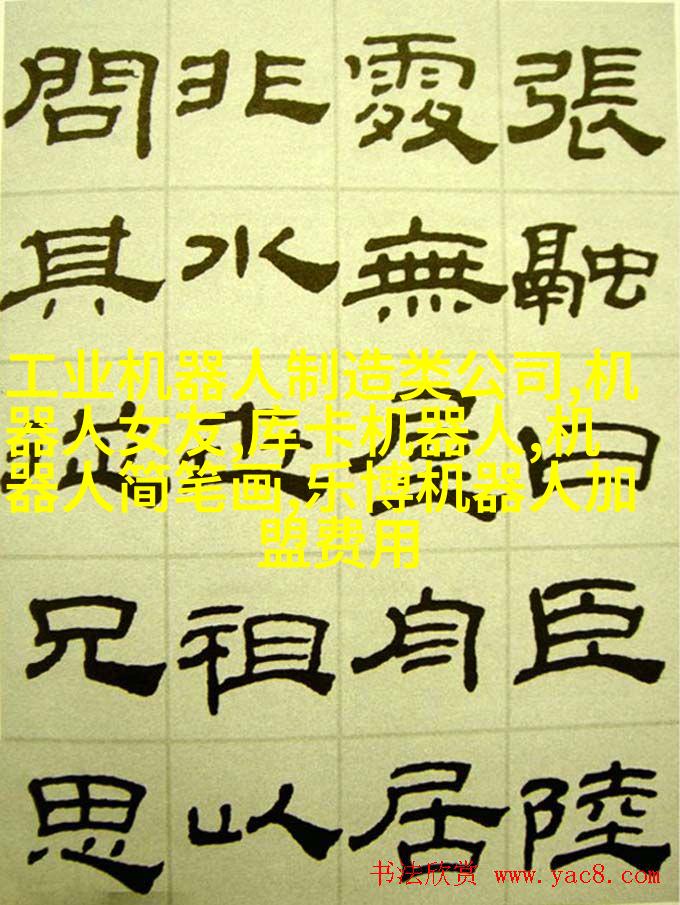 張融曰臣陸
處無屋舟居
非水世祖以
問其兄思
工业机器人制造类公司,机
器人女友,库卡机器人,机
器人简笔画,乐博机器人加
盟费用
书法欣赏 www.yac8.com